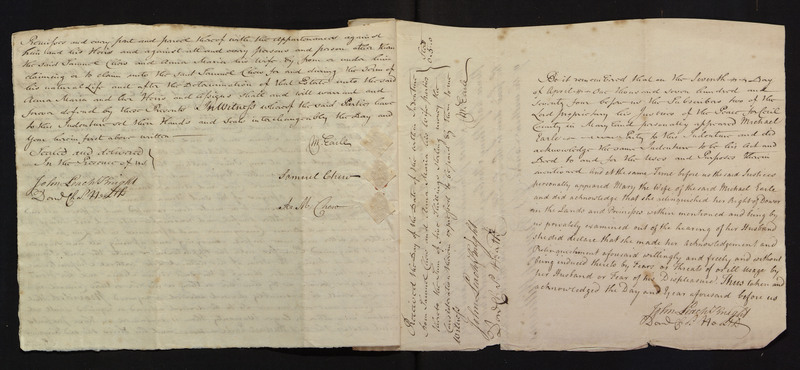 Premisses and every part and parcel thereof with the appurtenances against
him and his Heirs and against all and every persons and person other than
the said Samuel Chew and Anna Maria his Wife by from or under him
claiming or to claim unto the said Samuel Chew for and during the Term of
his natural Life and after the Determination of that Estate unto the said
Anna Maria and her Heirs and assigns shall and will warrant and
forever defend by these Presents In Witness whereof the said Parties have
to this Indenture set their Hands and Seals interchangeably the Day and
Year herein first above written
Sealed and delivered
In the Presence of us
John Leach Knight
Dond
M Earle
Samuel Chew
A M Chew
Received the Day of the Date of the within Indenture
from Samuel Chew and Anna Maria his Wife parties
thereto the Sum of two Shillings Sterling money the
Consideration therein expressed to be paid by them to me
Witness
M Earle
John Leach Knight
Be it remembered that in the Seventh Day
of April One thousand seven hundred and
Seventy four before us the Subscribers two of the
Lord proprietary his Justices of the Peace for Cecil
County in Maryland personally appeared Michael
Earle Party to the Indenture and did
acknowledge the same Indenture to be his Act and
Deed to and for the Uses and Purposes therein
mentioned And at the same Time before us the said Justices
personally appeared Mary the Wife of the said Michael Earle
and did acknowledge that she relinquished her Right of Dower
in the Lands and Premisses within mentioned and being by
us privately examined out of the hearing of her Husband
she did declare that she made her acknowledgement and
Relinquishment aforesaid willingly and freely and without
being induced thereto by Fears or Threats of or ill Usage by
her Husband or Fear of his Displeasure Thus taken and
acknowledged the Day and Year aforesaid before us
John Leach Knight